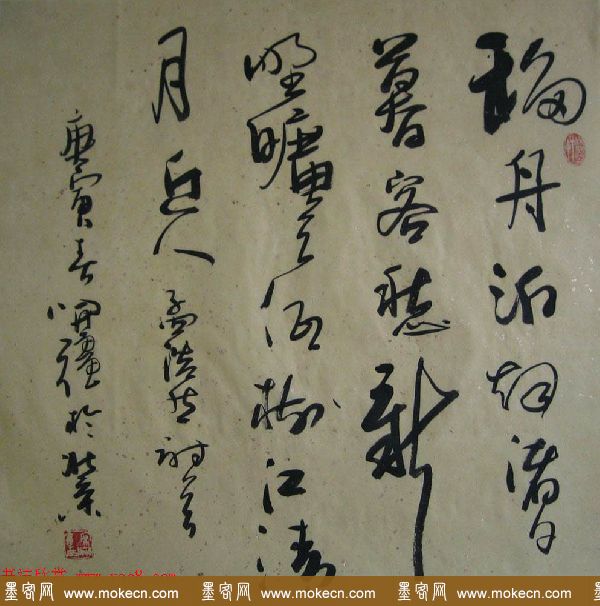 移舟泊烟渚日
暮客愁新
野曠天低樹江清
月近人 孟浩然詩
庚寅春 於北京
墨客网 www.mokecn.com 墨客网 www.mokecn.com 墨客网 www.mokecn.com